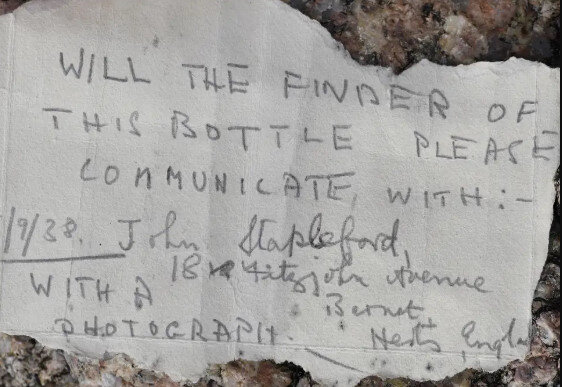 WILL THE FINDER OF
THIS BOTTLE PLEASE
COMMUNICATE, WITH:-
1/9/38. John Stapleford,
18 Fitzjohn Avenue
WITH A
Barnet,
PHOTOGRAPH.
Herts, Engla